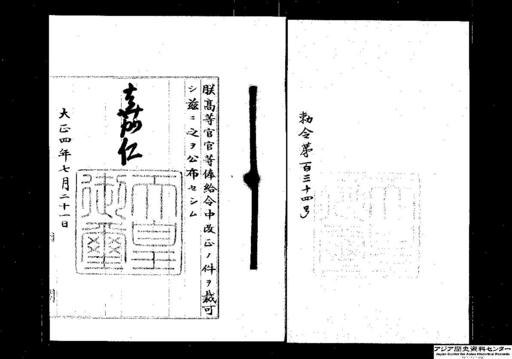 勅令第百三十四号
朕高等官官等俸給令中改正ノ件ヲ裁可
シ茲ニ之ヲ公布セシム
嘉仁
天皇御璽
大正四年七月二十一日
アジア歴史資料センター
Japan Center for Asian Historical Records